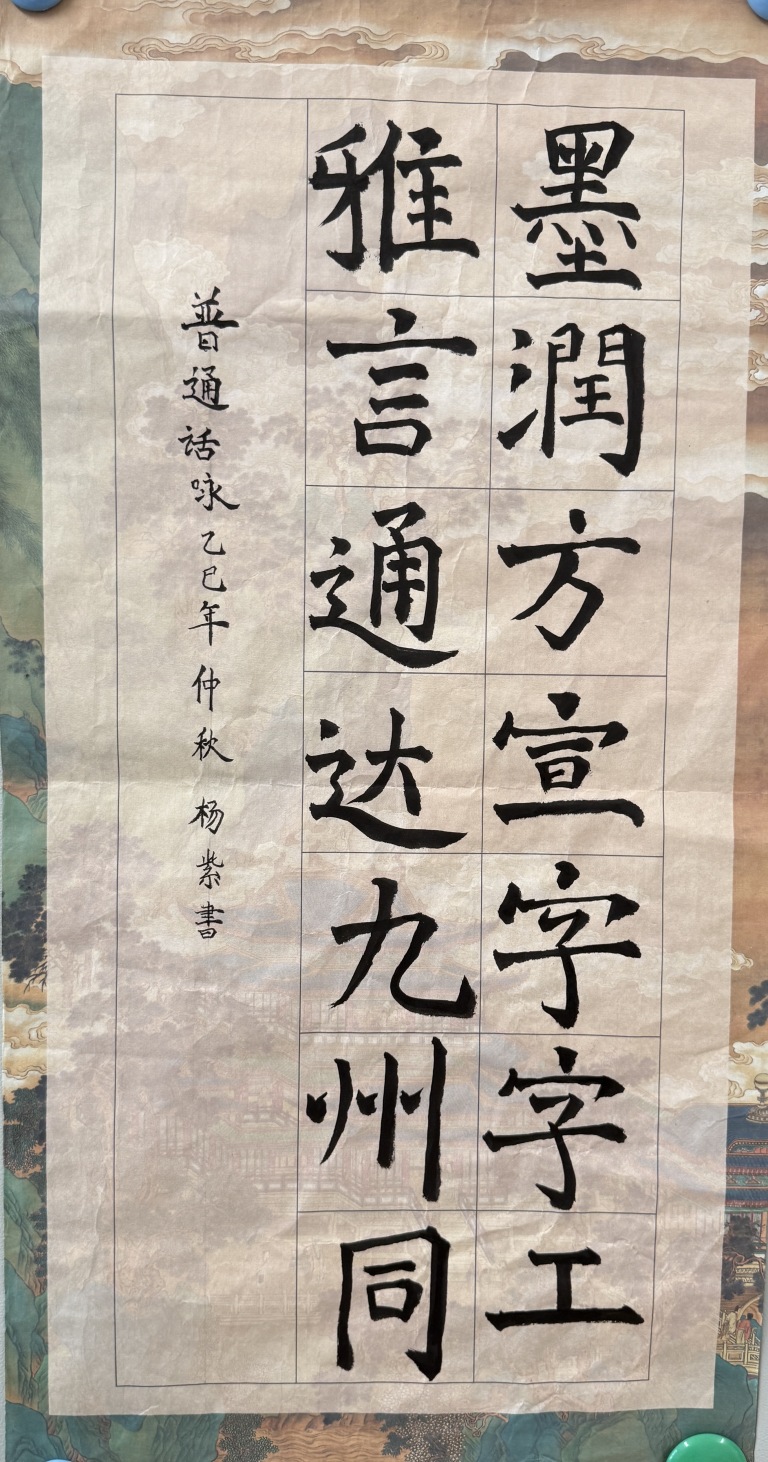 墨潤方宣字字工
雅言通达九州同
普通话咏乙巳年仲秋杨紫書